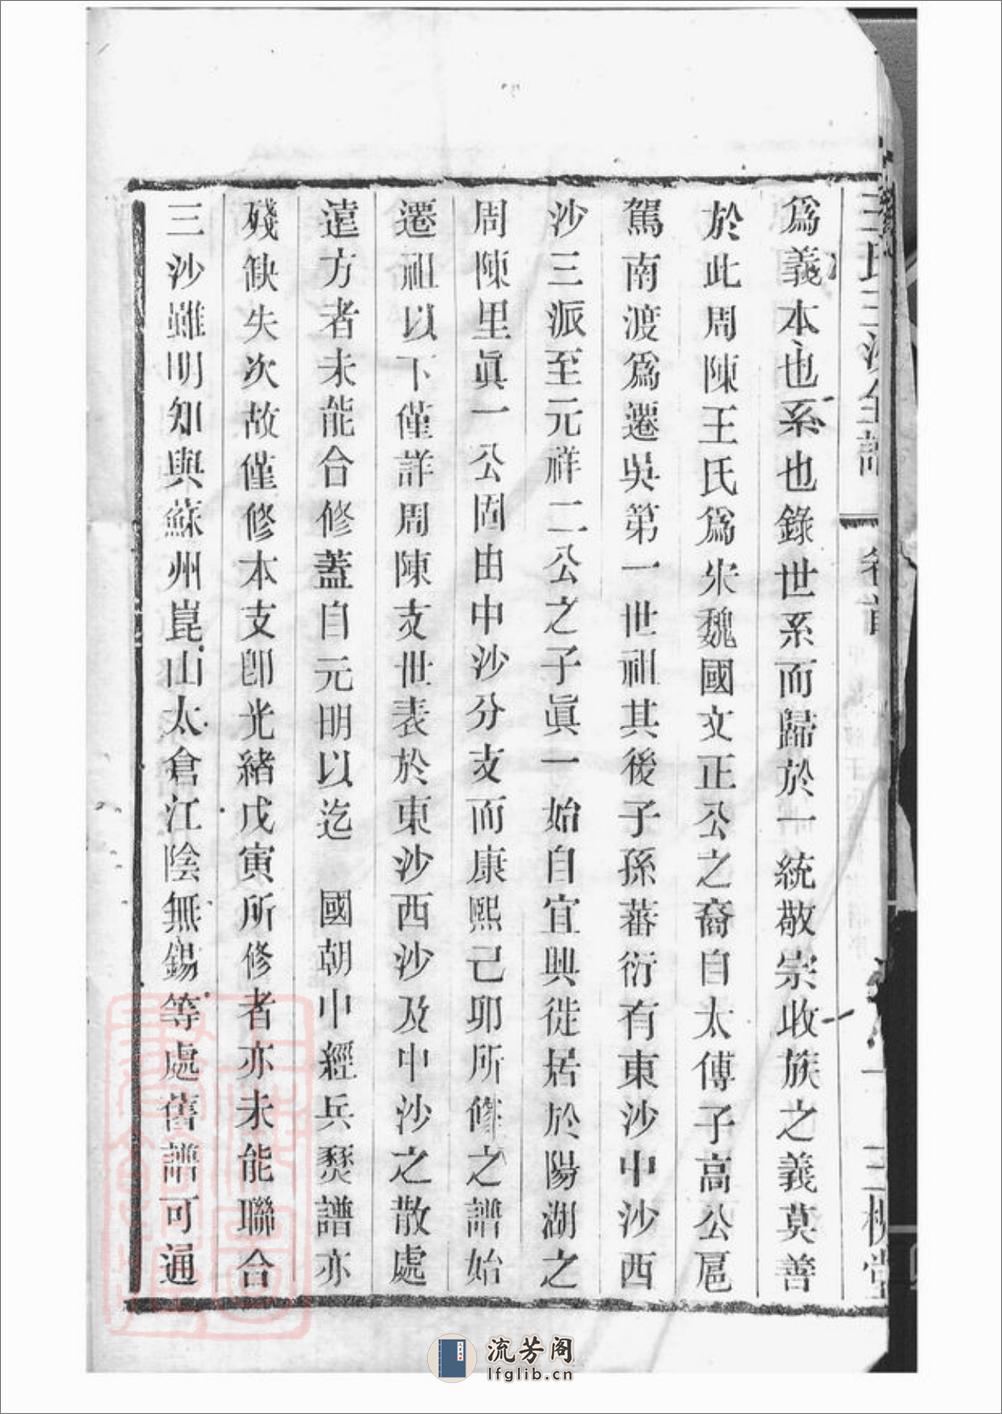 爲義本也系也錄世系而歸於一統敬宗收族之義莫善
於此周陳王氏爲宋魏國文正公之裔自太傅子高公扈
駕南渡爲遷吳第一世祖其後子孫蕃衍有東沙中沙西
沙三派至元祥二公之子眞一始自宜興徙居於陽湖之
周陳里眞一公固由中沙分支而康熙己卯所修之譜始
遷祖以下僅詳周陳支世表於東沙西沙及中沙之散處
遠方者未能合修蓋自元明以迄　國朝中經兵燹譜亦
殘缺失次故僅修本支卽光緒戊寅所修者亦未能聯合
三沙雖明知與蘇州崑山太倉江陰無錫等處舊譜可通
王氏三沙全譜
三槐堂
流芳阁
lfglib.cn